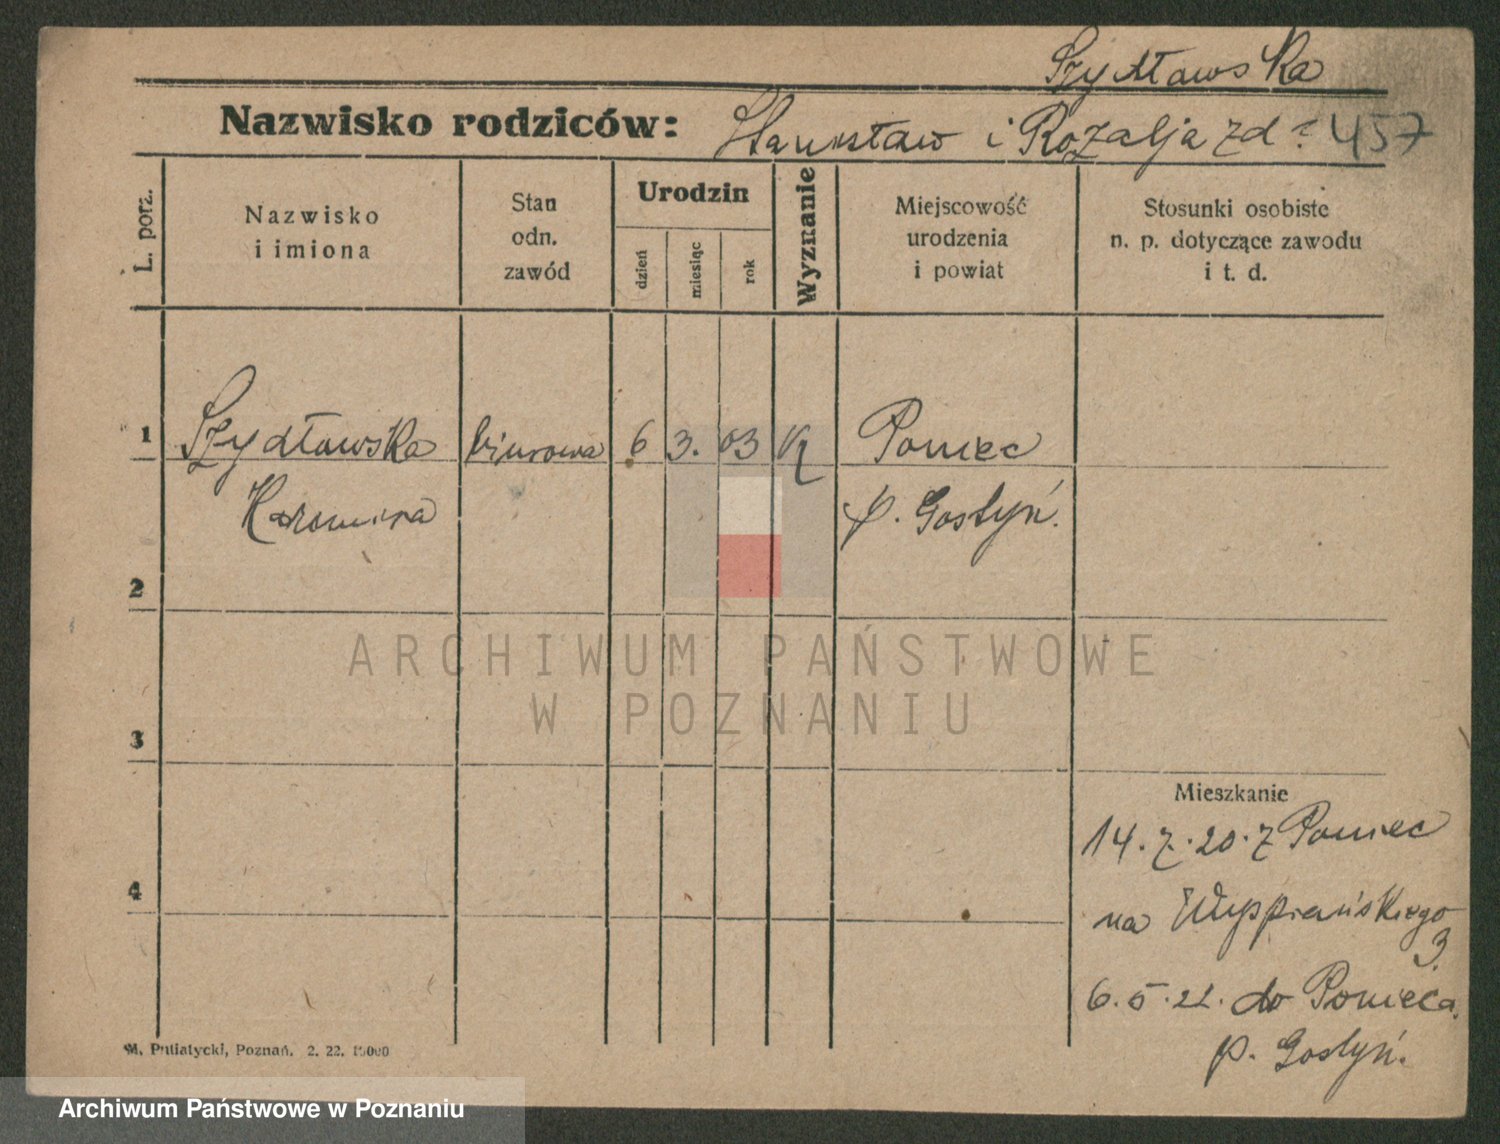 Szydławska
Nazwisko rodziców: Stanisław i Rozalja zd 457
L. porz.
Nazwisko
i imiona
Stan
odn.
zawód
Urodzin
dzień
miesiąc
rok
Wyznanie
Miejscowość
urodzenia
i powiat
Stosunki osobiste
n. p. dotyczące zawodu
i t. d.
1 Szydławska biurowa 6 3. 03 K Poniec
p. Gostyń.
2
ARCHIWUM PAŃSTWOWE
W POZNANIU
3
Mieszkanie
14. 7. 20. z Poniec
4
na Wyspiańskiego
3.
6. 5. 22. do Ponieca.
p. Gostyń.
M. Putiatycki, Poznań. 2. 22. 15000
Archiwum Państwowe w Poznaniu